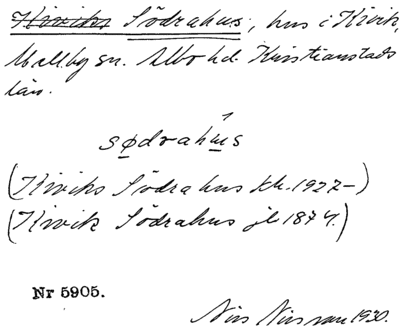 Kiviks Södrahus, hus i Kivik,
Mellby sn. Albo hd. Kristianstads
län.
sødrahus
(Kiviks Södrahus kk. 1927-)
(Kivik Södrahus jb 1874.)
Nr 5905.
Nils Nilsson 1930.